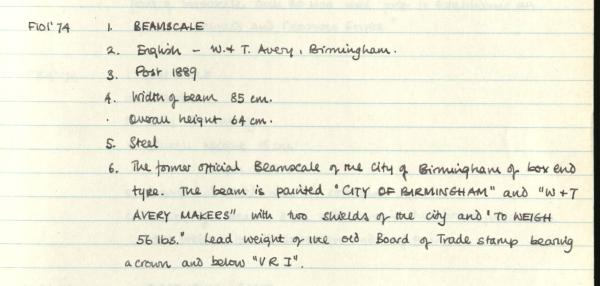 F101'74 1. BEAMSCALE
2. English – W. + T. Avery, Birmingham.
3. Post 1889
4. Width of beam 85 cm.
. Overall height 64 cm.
5. Steel
6. The former official Beamscale of the City of Birmingham of box end
type. The beam is painted "CITY OF BIRMINGHAM" and "W + T
AVERY MAKERS" with two shields of the city and "TO WEIGH
56 lbs." Lead weight of the old Board of Trade stamp bearing
a crown and below "V R I".